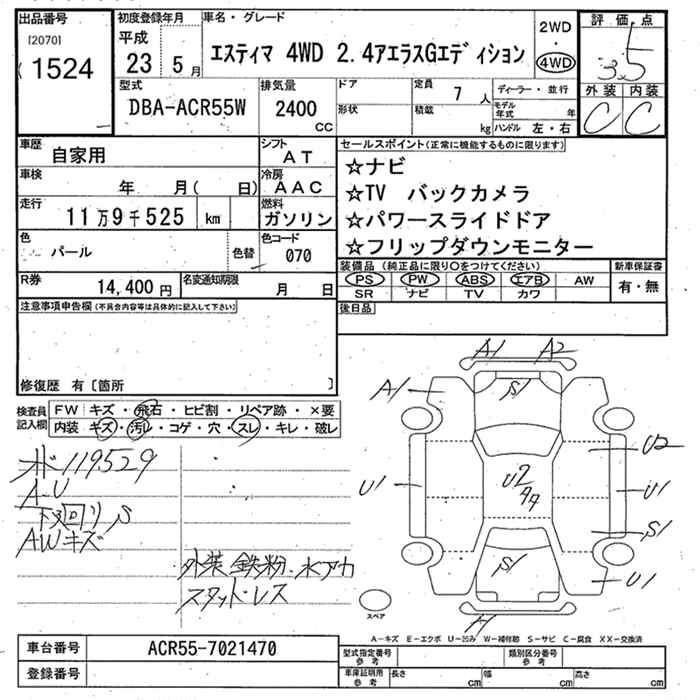 出品番号
[2070]
1524
初度登録年月
平成
23 5月
車名・グレード
エスティマ 4WD 2.4アエラスGエディション
2WD
・
4WD
評価点
3.5
外装 内装
C C
型式
DBA-ACR55W
排気量
2400
cc
ドア
形状
定員
7人
積載
kg
ディーラー・並行
モデル年式 年
ハンドル 左・右
車歴
自家用
シフト
AT
車検
年 月( 日)
冷房
AAC
走行
11万9千525 km
燃料
ガソリン
色
パール
色替
色コード
070
R券
14,400円
名変通知期限
月 日
セールスポイント(正常に機能するものに限ります)
☆ナビ
☆TV バックカメラ
☆パワースライドドア
☆フリップダウンモニター
装備品(純正品に限り○をつけてください)
新車保証書
PS PW ABS エアB AW
SR ナビ TV カワ
有・無
後日品
注意事項申告欄(不具合内容等は具体的に記入して下さい)
修復歴 有〔箇所 〕
検査員
記入欄
FW キズ・飛石・ヒビ割・リペア跡・×要
内装 キズ・汚レ・コゲ・穴・スレ・キレ・破レ
119529
A-U
下廻りS
AWキズ
外装 鉄粉・水アカ
スタッドレス
A1 A2
A1 S1
U2
U1 U2 44 U1
S1 S1
U1
A1
スペア
A-キズ E-エクボ U-凹み W-補修跡 S-サビ C-腐食 XX-交換済
車台番号
ACR55-7021470
登録番号
型式指定番号
参考
類別区分番号
参考
車庫証明用
参考
長さ cm 幅 cm 高さ cm